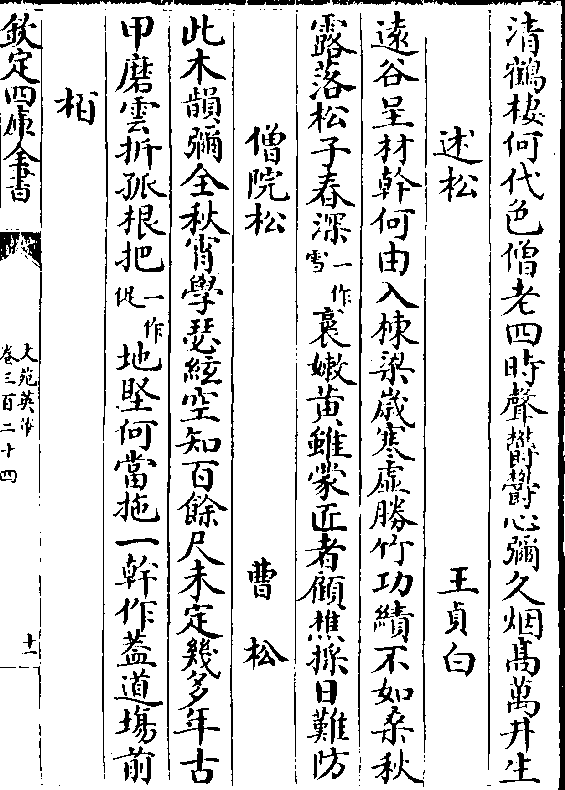 清鶴棲何代色僧老四時聲鬱鬱心彌久烟髙萬井生
述松　王貞白
遠谷呈材幹何由入棟梁歳寒虚勝竹功績不如桑秋
露落松子春深一作雪裛嫩黄雖蒙匠者顧樵採日難防
僧院松　曹松
此木韻彌全秋宵學瑟絃空知百餘尺未定幾多年古
甲磨雲拆孤根把一作促地堅何當拖一幹作葢道塲前
栢
欽定四庫全書
文苑英華
卷三百二十四
十一